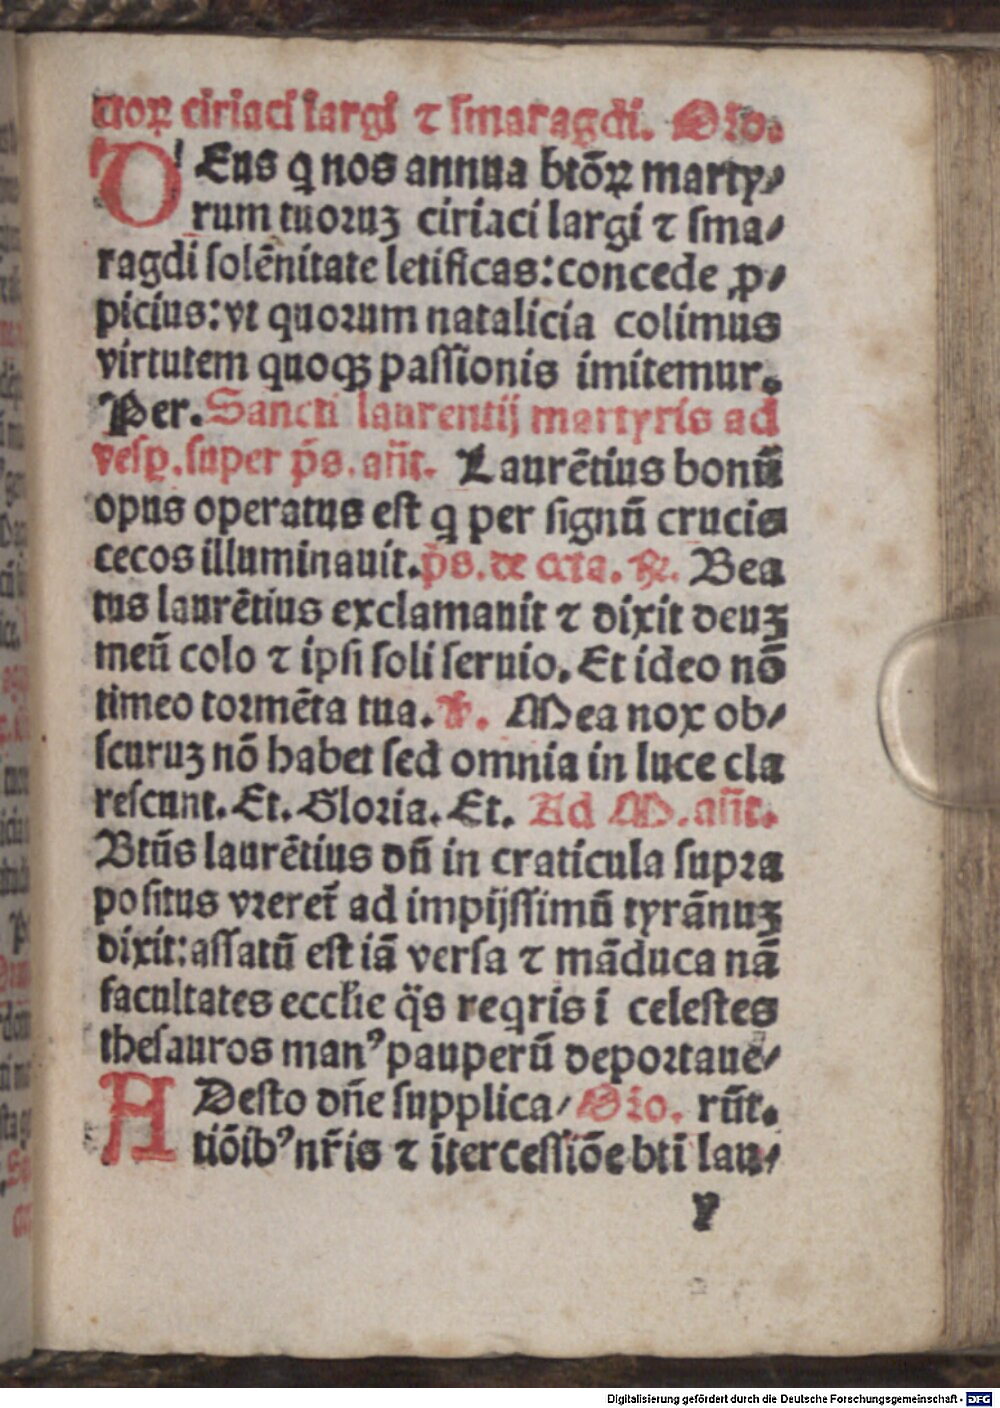 ctoꝝ ciriaci largi ⁊ smaragdi. Oro.
DEus q nos annua btōꝝ marty⸗
rum tuoruꝫ ciriaci largi ⁊ sma⸗
ragdi solēnitate letificas: concede ꝓ⸗
picius: vt quorum natalicia colimus
virtutem quoqꝫ passionis imitemur.
Per. Sancti laurentij martyris ad
vesꝑ. super p̄s. an̄t. Laurētius bonū
opus operatus est q per signū crucis
cecos illuminauit. p̄s. de cīa. ℟. Bea
tus laurētius exclamauit ⁊ dixit deuꝫ
meū colo ⁊ ipsi soli seruio. Et ideo nō
timeo tormēta tua. ℣. Mea nox ob⸗
scuruꝫ nō habet sed omnia in luce cla
rescunt. Et. Gloria. Et. Ad M. an̄t.
Btūs laurētius dū in craticula supra
positus vreret̄ ad impijssimū tyrānuꝫ
dixit: assatū est iā versa ⁊ māduca nā
facultates eccl̄ie q̄s reqris ī celestes
thesauros manꝰ pauperū deportaue⸗
ADesto dn̄e supplica⸗ Oro. rūt.
tiōibꝰ nr̄is ⁊ ītercessiōe btī lau⸗
y
Digitalisierung gefördert durch die Deutsche Forschungsgemeinschaft - DFG